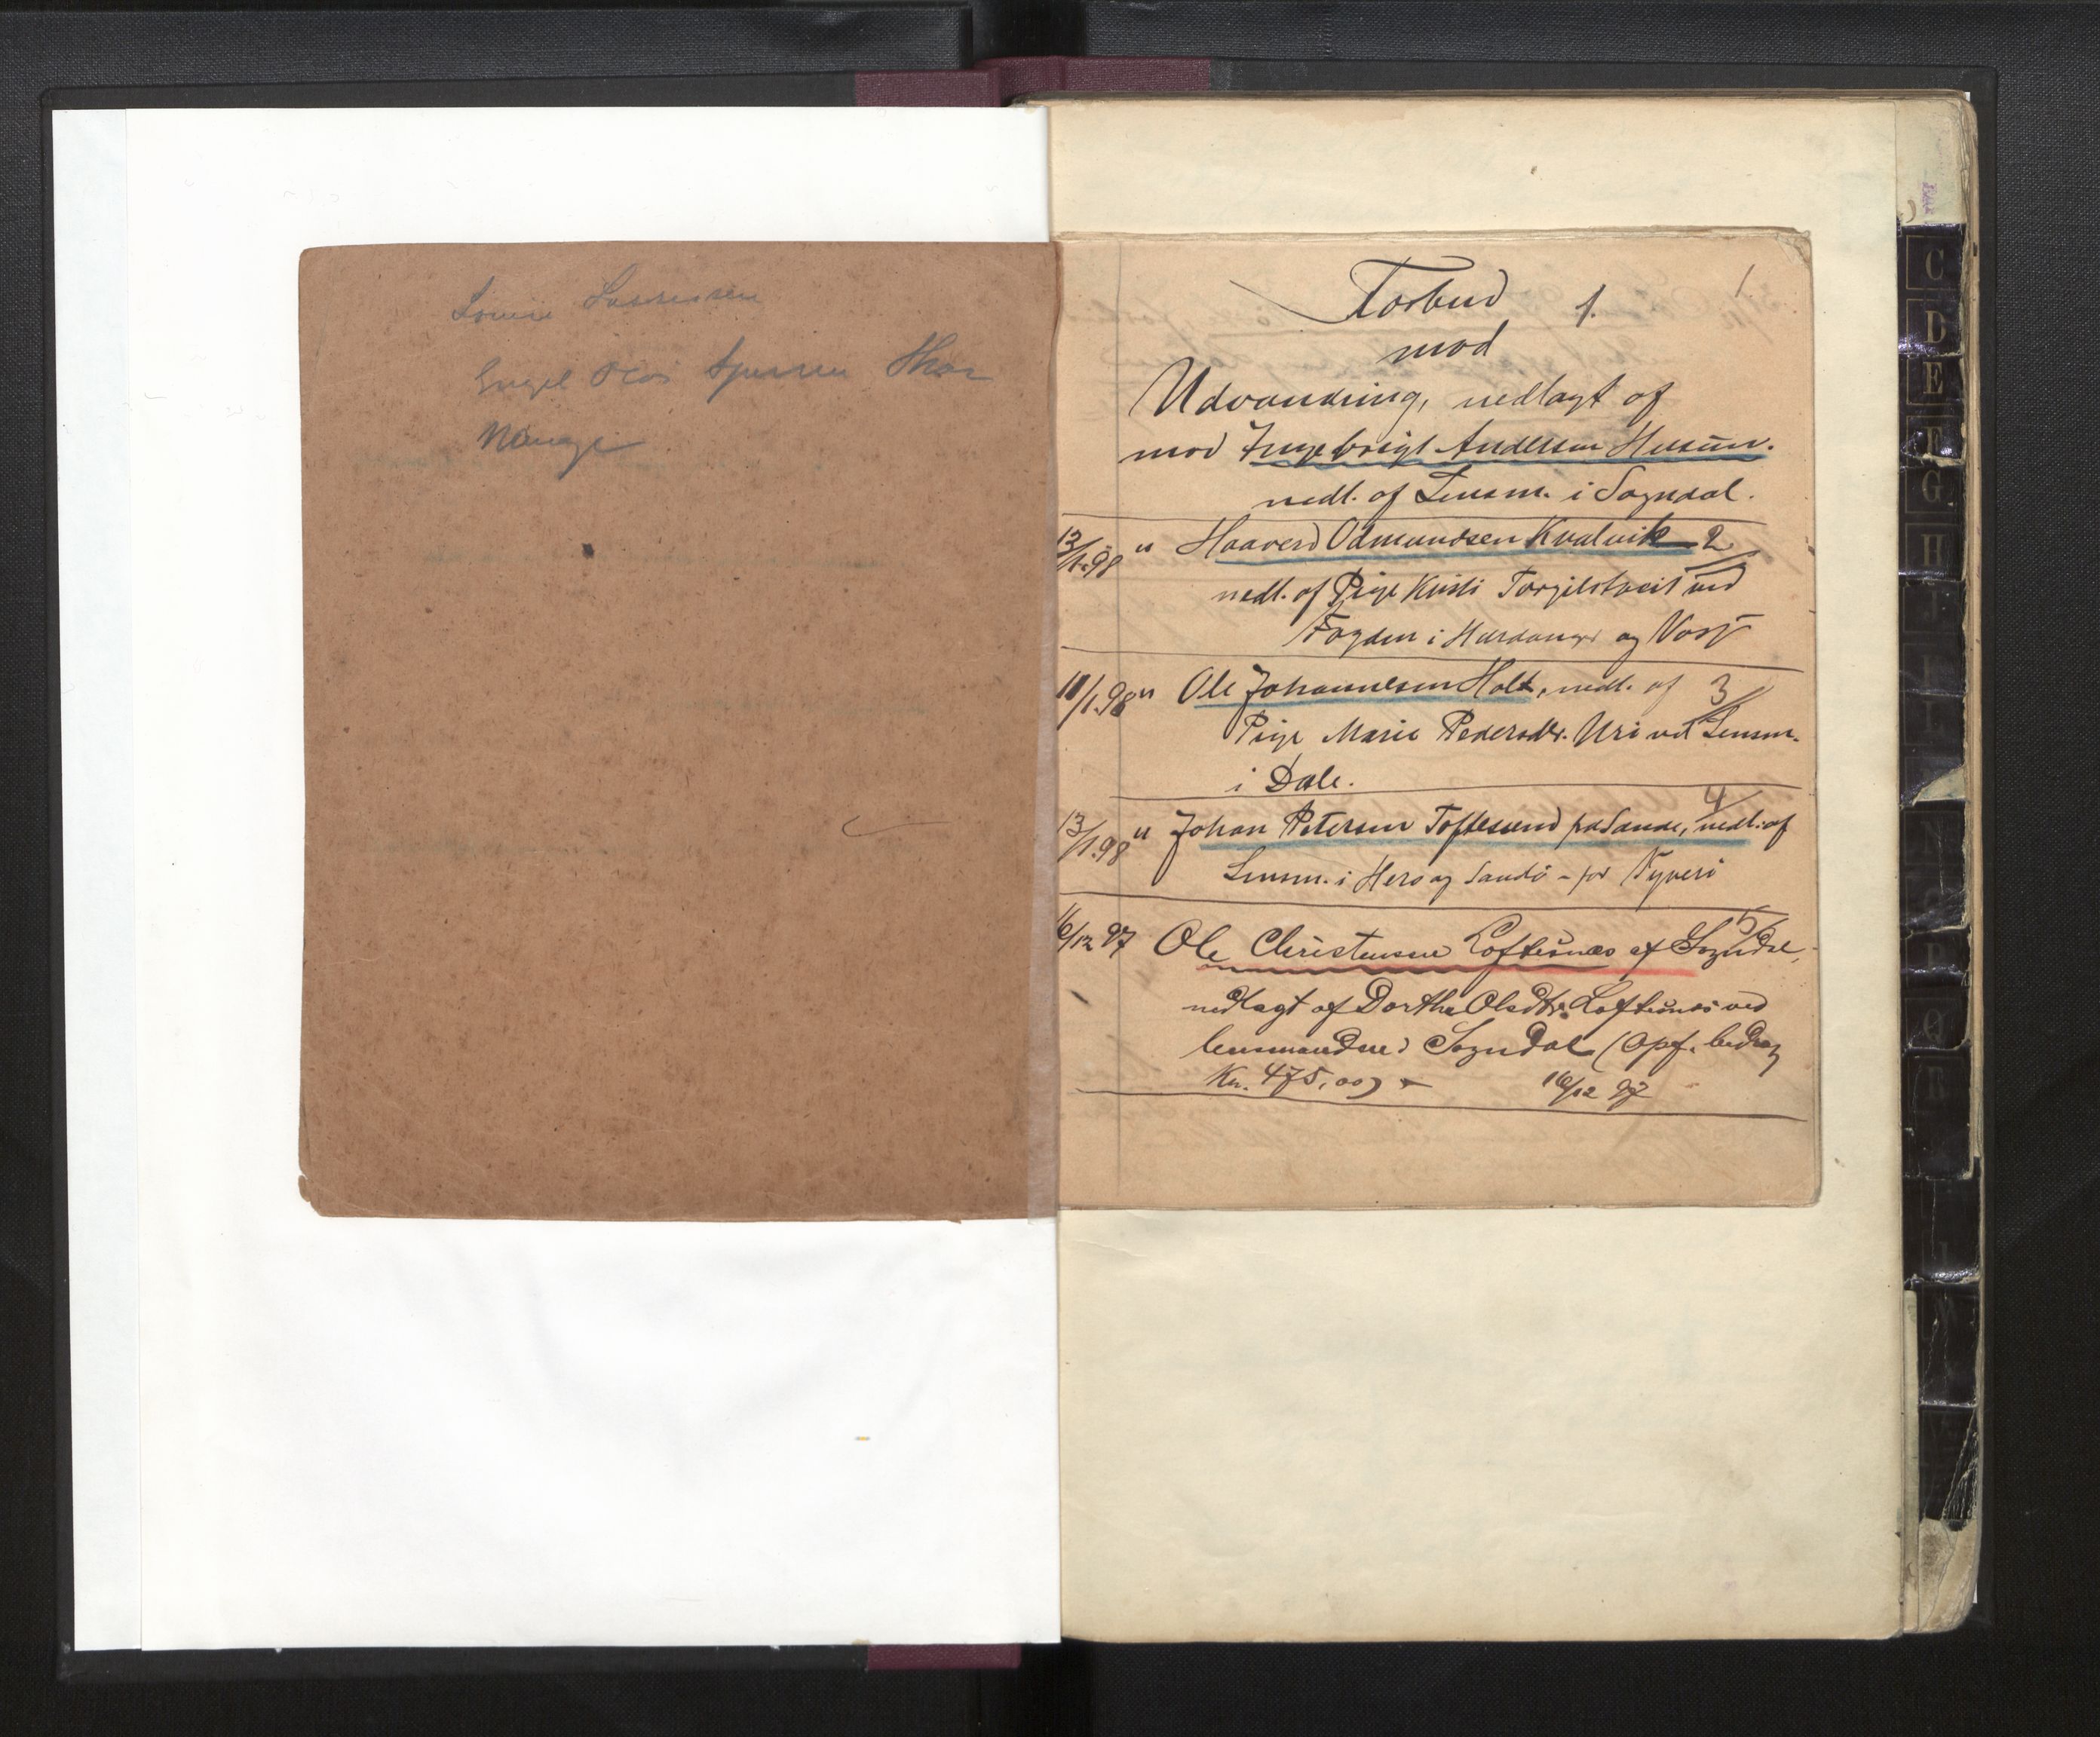 Forbud 1.
1
mod
Udvandring, nedlagt af
mod Ingebrigt Andersen Husum.
nedl. af Lensm. i Sogndal.
13/1.98 " Haaverd Odmundsen Kvalvik 2
nedl. af Pige Kristi Torgilstveit ved
Fogden i Hardanger og Voss
11/1.98 " Ole Johannesen Holt, nedl. af 3
Pige Marie Pedersdtr. Uri ved Lensm.
i Dale.
4
13/1.98 " Johan Petersen Toftesund paa Sande, nedl. af
Lensm. i Herö og Sandö - for Tyveri
5
16/12 97 Ole Christensen Loftesnæs af Sogndal,
nedlagt af Dorthe Olsdtr. Loftesnæs ved
lensmanden i Sogndal (opf. bedrag
Kr. 475,00) - 16/12 97
C
D
E
F
G
H